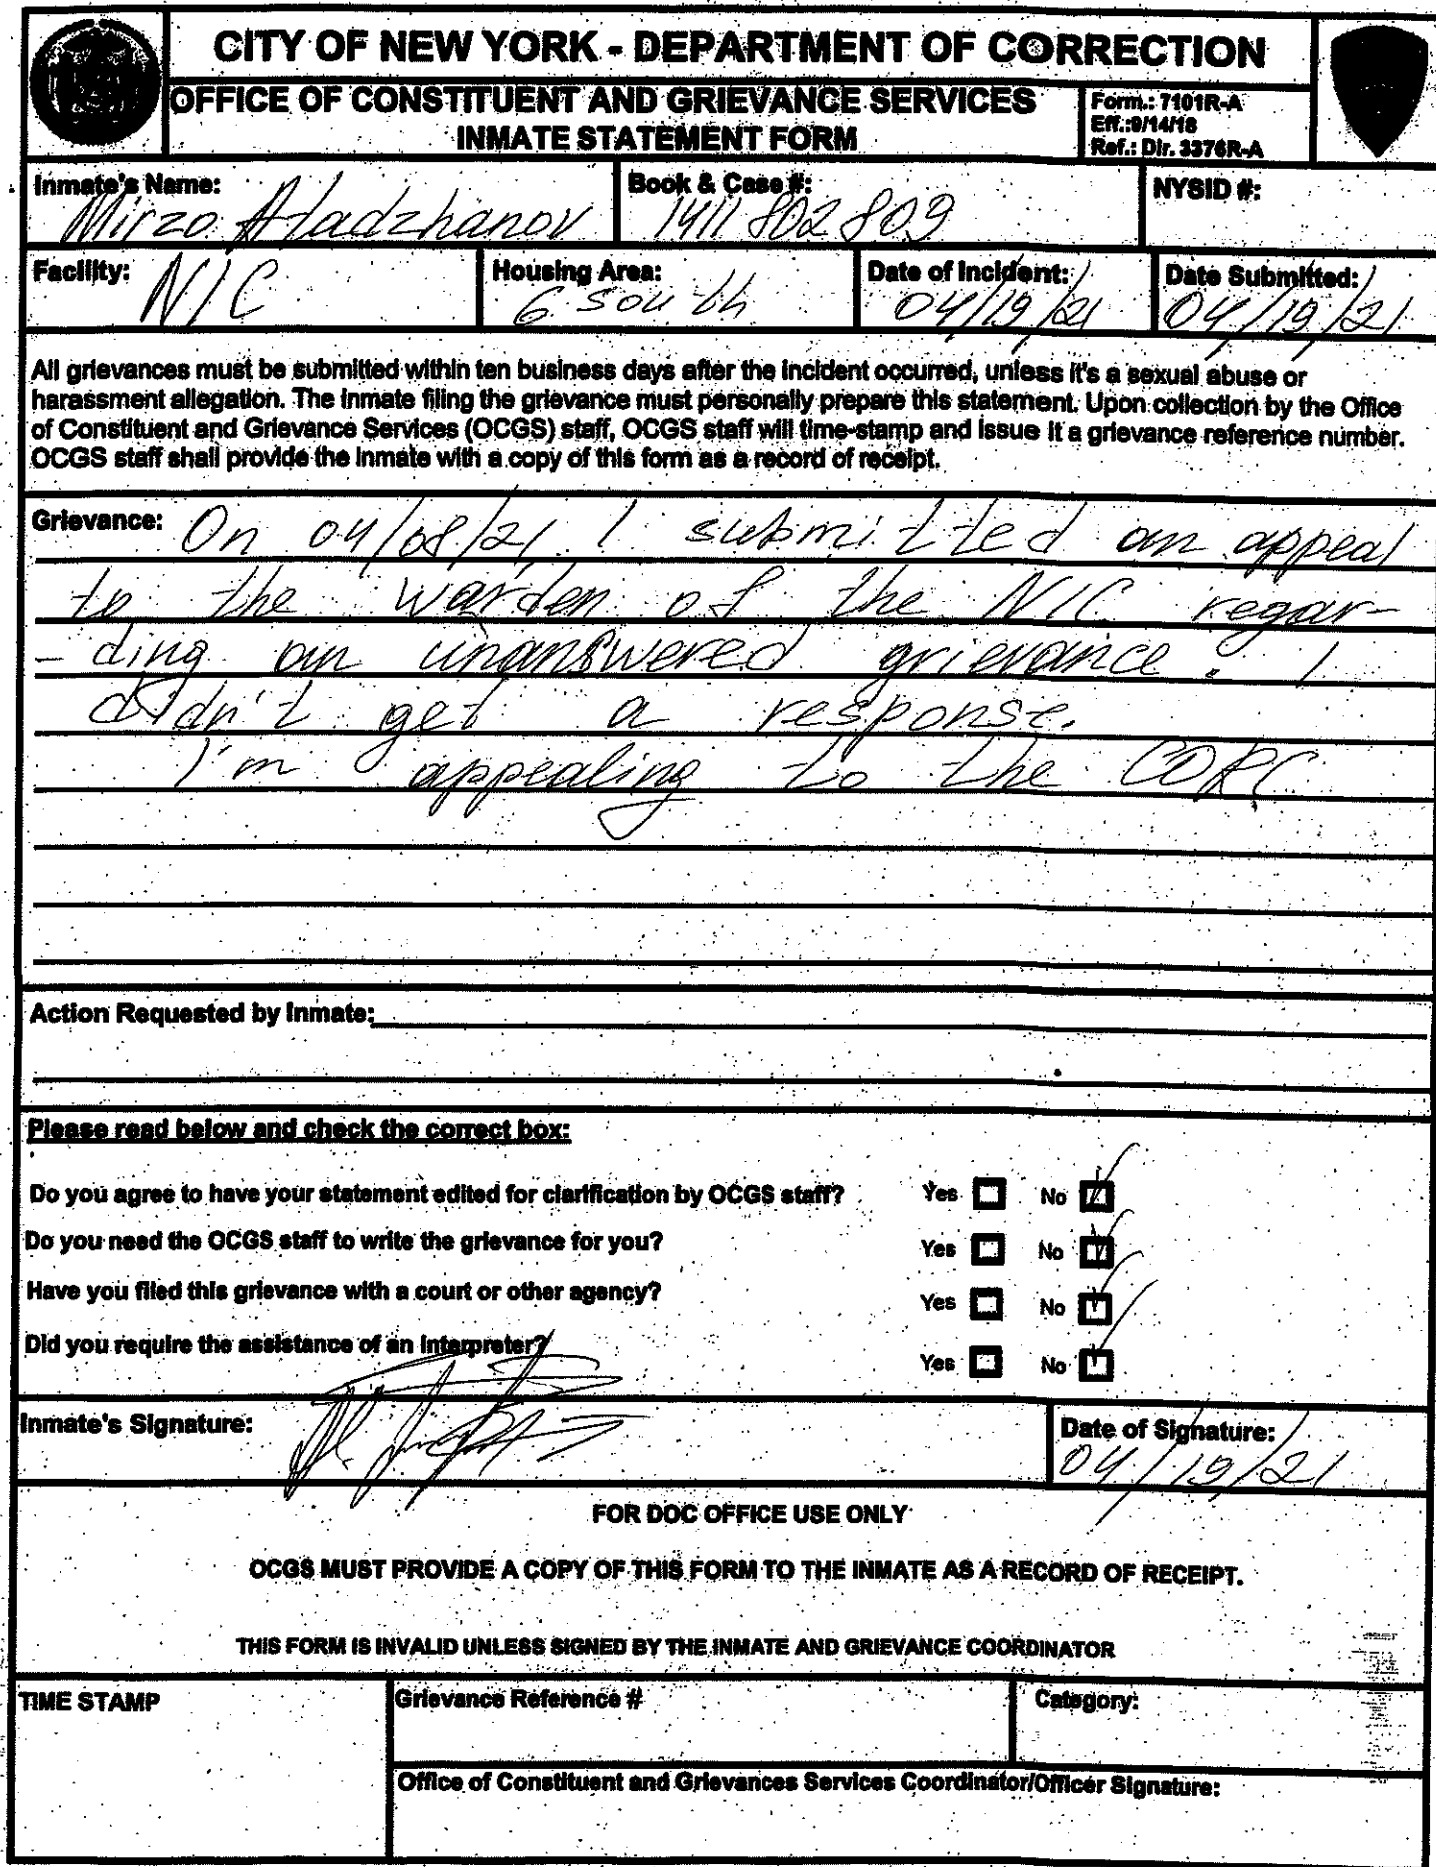 CITY OF NEW YORK - DEPARTMENT OF CORRECTION
OFFICE OF CONSTITUENT AND GRIEVANCE SERVICES
INMATE STATEMENT FORM
Form.: 7101R-A
Eff.:9/14/18
Ref.: Dir. 3376R-A
Inmate's Name: Mirzo Atadzhanov
Book & Case #: 1411802809
NYSID #:
Facility: NIC
Housing Area: 6 south
Date of Incident: 04/19/21
Date Submitted: 04/19/21
All grievances must be submitted within ten business days after the incident occurred, unless it's a sexual abuse or
harassment allegation. The inmate filing the grievance must personally prepare this statement. Upon collection by the Office
of Constituent and Grievance Services (OCGS) staff, OCGS staff will time-stamp and issue it a grievance reference number.
OCGS staff shall provide the inmate with a copy of this form as a record of receipt.
Grievance: On 04/08/21 I submitted an appeal
to the warden of the NIC regar-
-ding an unanswered grievance. I
didn't get a response.
I'm appealing to the CORC
Action Requested by Inmate:
Please read below and check the correct box:
Do you agree to have your statement edited for clarification by OCGS staff? Yes No
Do you need the OCGS staff to write the grievance for you? Yes No
Have you filed this grievance with a court or other agency? Yes No
Did you require the assistance of an interpreter? Yes No
Inmate's Signature:
Date of Signature: 04/19/21
FOR DOC OFFICE USE ONLY
OCGS MUST PROVIDE A COPY OF THIS FORM TO THE INMATE AS A RECORD OF RECEIPT.
THIS FORM IS INVALID UNLESS SIGNED BY THE INMATE AND GRIEVANCE COORDINATOR
TIME STAMP
Grievance Reference #
Category:
Office of Constituent and Grievances Services Coordinator/Officer Signature: